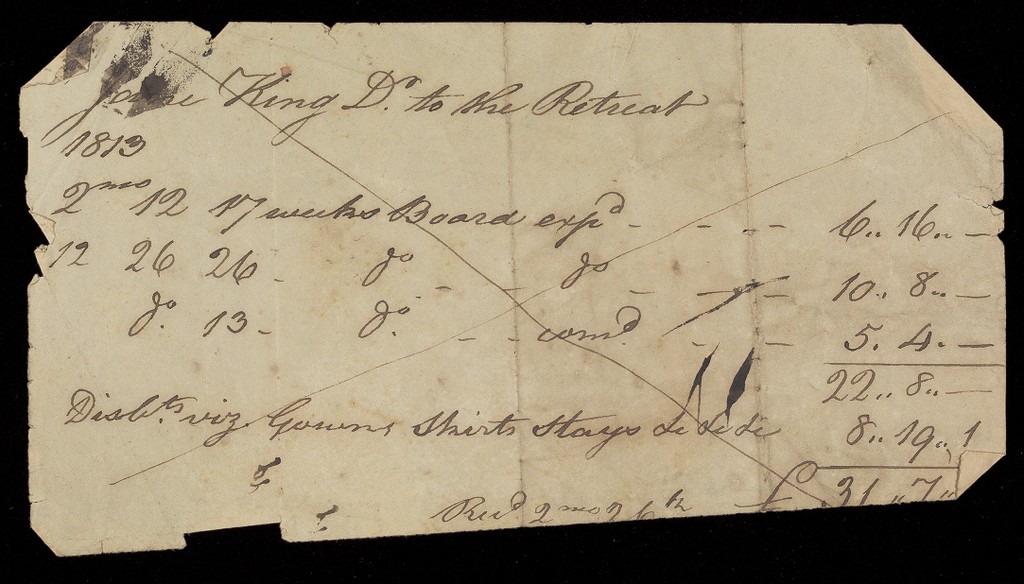 Jane King Dr. to the Retreat
1813
2mo 12 17 weeks Board expd - - - - 6.. 16.. —
12 26 26 - do - do - - - 10.. 8.. —
do. 13 - do. - - comd. - - 5. 4. —
22.. 8.. —
Disbts. viz. Gowns, Shirts Stays &c &c &c 8.. 19.. 1
Recd 2mo 26th £ 31 .. 7 ..